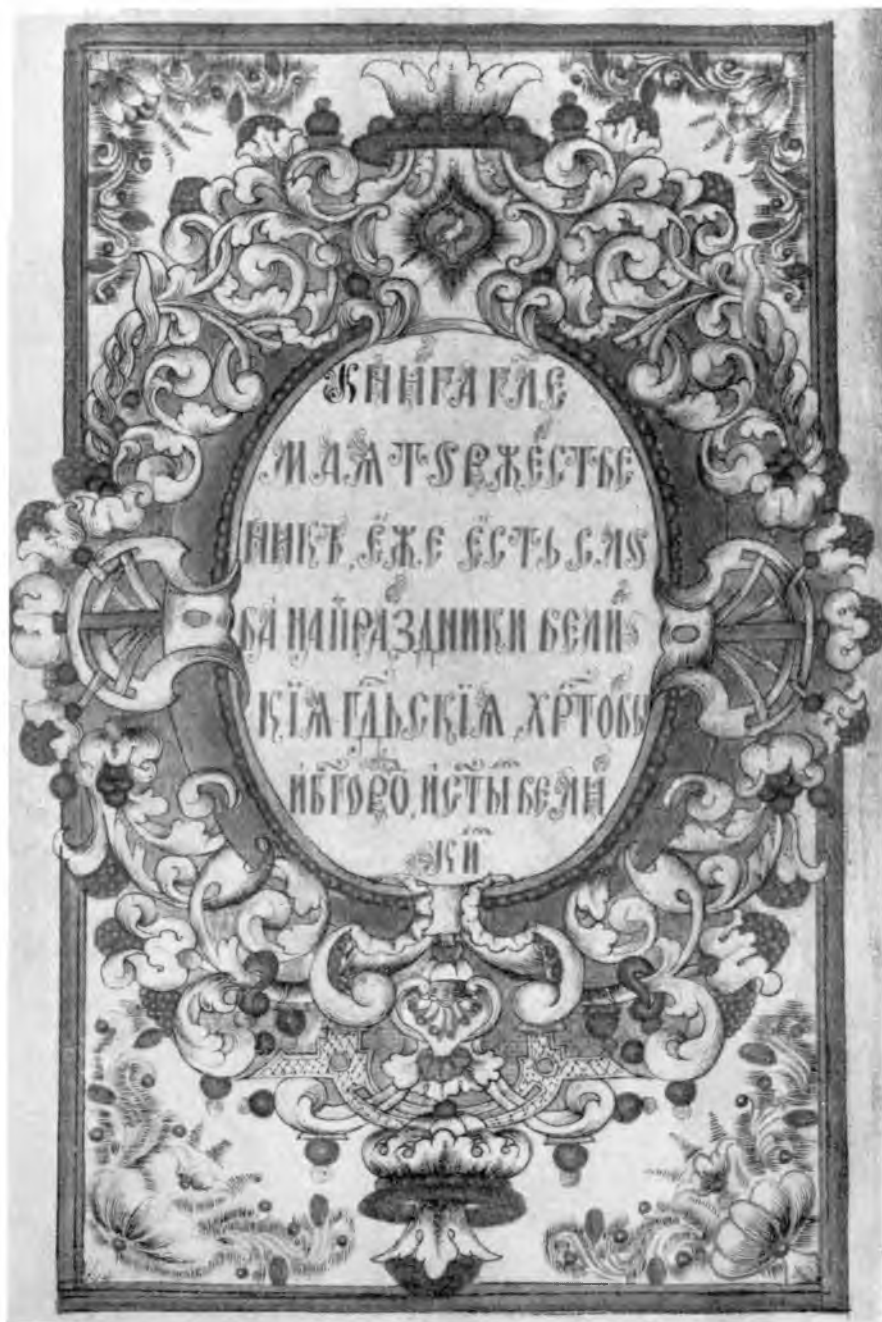 КНИГА ГЛЕ
МАѦ ТОРЖЕСТВЕ
НИКЪ, Е҆ЖЕ Е҆СТЬ СЛО
ВА НАПРАЗДНИКИ ВЕЛИ
КІѦ ГДЬСКІѦ ХРТОВЫ
И҆ БГОРО, И҆ СТЫ ВЕЛИ
КИ